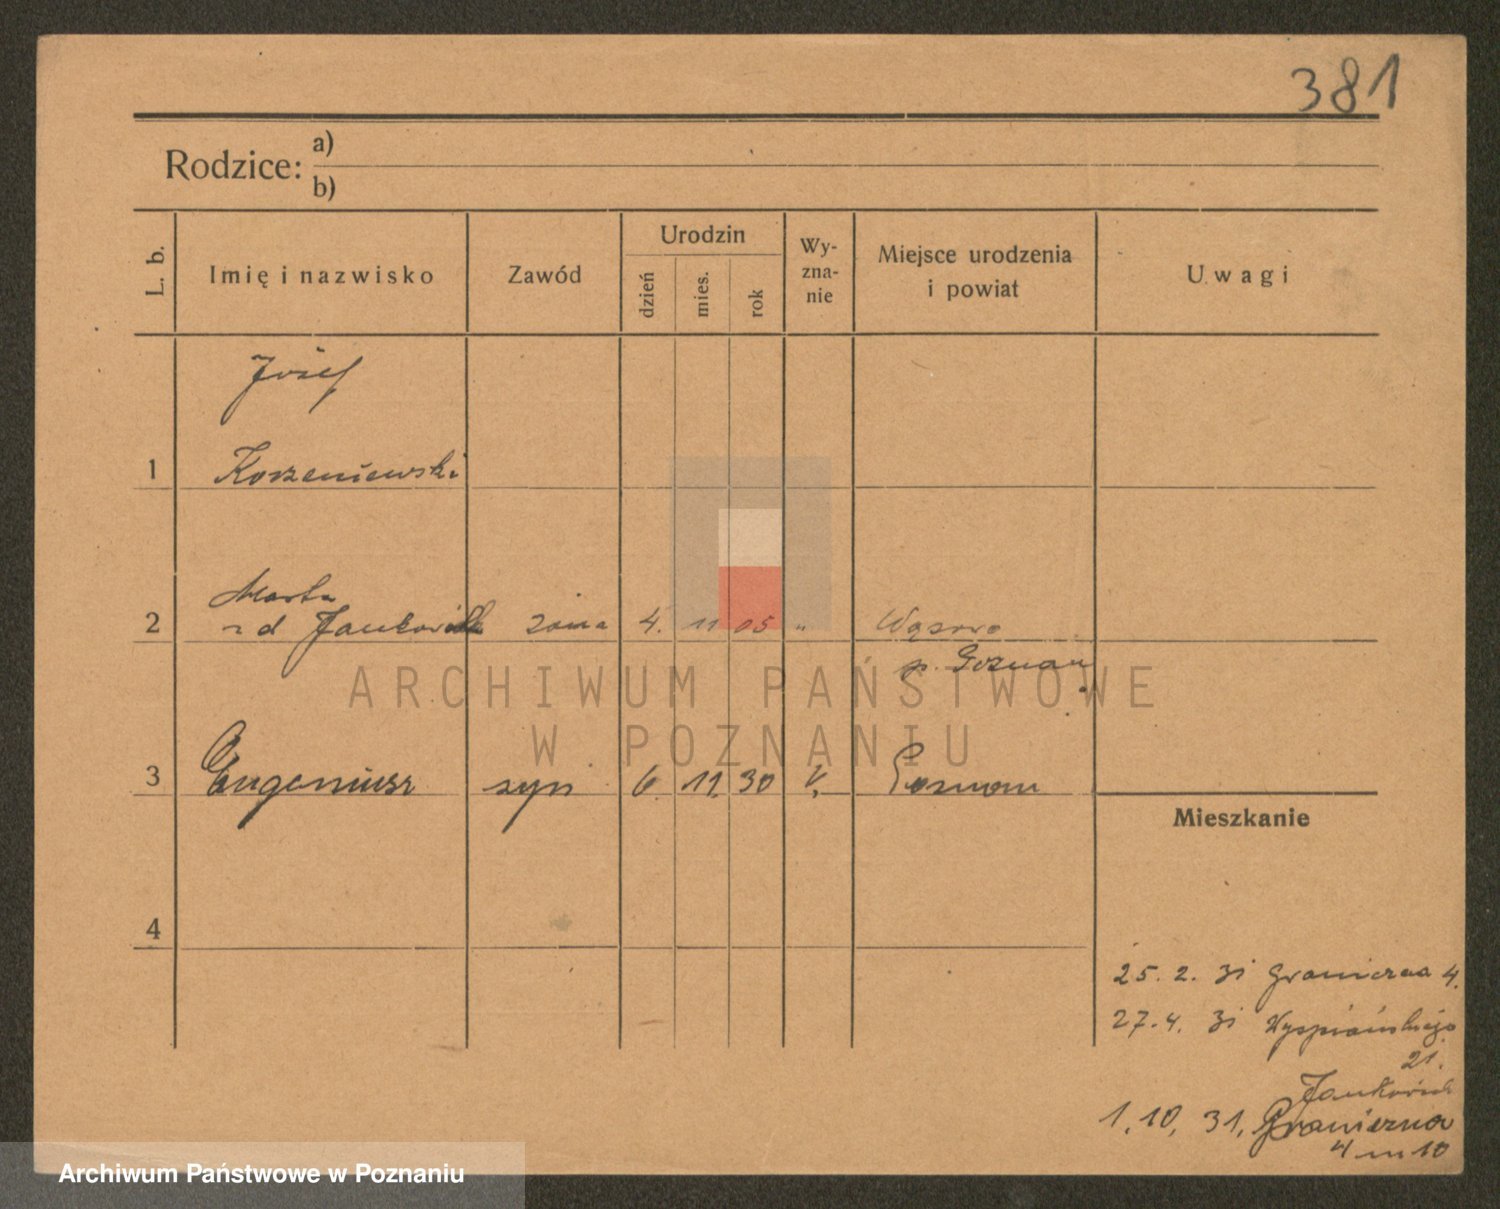 381
Rodzice: a)
b)
L. b. Imię i nazwisko Zawód Urodzin dzień mies. rok Wy-zna-nie Miejsce urodzenia i powiat Uwagi
Józef
1 Korzeniewski
Marta
2 z d Jankowiak żona 4. 11 05 " Wąsowo
p. Poznań
ARCHIWUM PAŃSTWOWE
W POZNANIU
3 Eugeniusz syn 6. 11. 30 Poznań
Mieszkanie
4
25. 2. 31 Graniczna 4.
27. 4. 31 Wyspiańskiego
21.
1. 10. 31, Graniczna
4 m 10
Archiwum Państwowe w Poznaniu